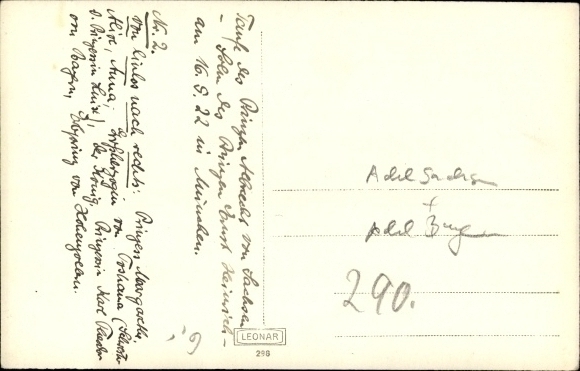 Taufe des Prinzen Albrecht von Sachsen
– Sohn des Prinzen Ernst Heinrich –
am 16.9.22 in München.
Nr. 2.
von links nach rechts: Prinzess. Margarethe,
Alix, Anna, Erzherzogin von Toskana (Schwester
d. Prinzessin Luise), der König, Prinzessin Karl Theodor
von Bayern, Erbprinz von Hohenzollern.
Adel Sachsen
+
Adel Bayern
290.
LEONAR
298